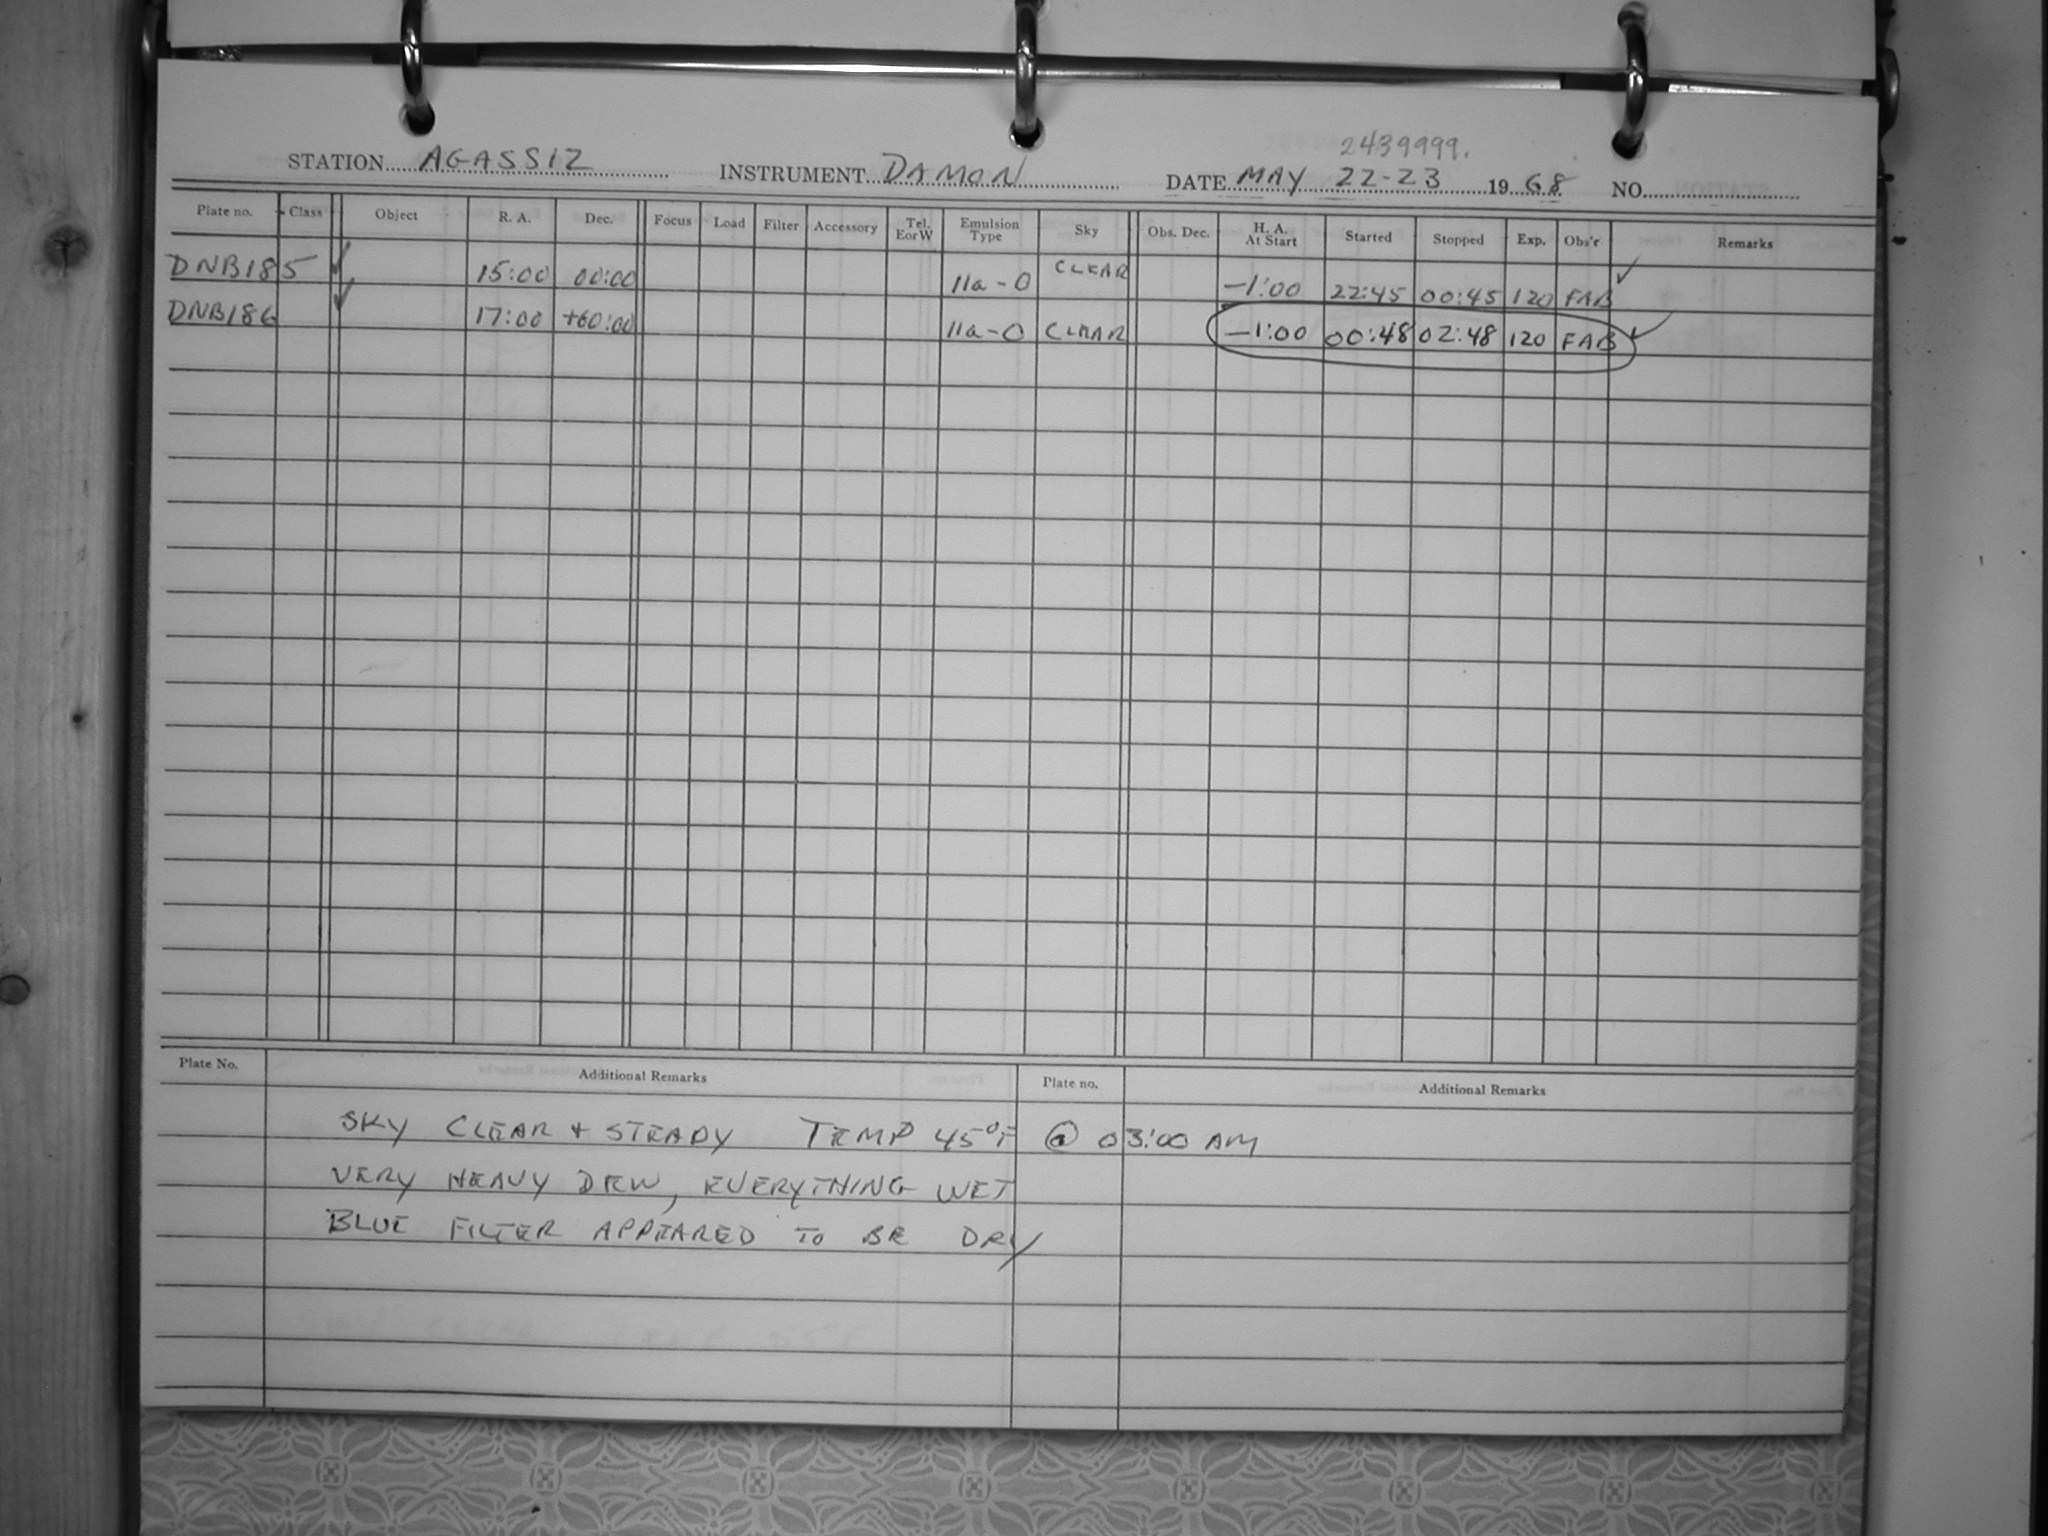 2439999.
STATION AGASSIZ INSTRUMENT DAMON DATE MAY 22-23 1968 NO.
Plate no. Class Object R. A. Dec. Focus Load Filter Accessory Tel. E or W Emulsion Type Sky Obs. Dec. H. A. At Start Started Stopped Exp. Obs'r Remarks
DNB185 ✓ 15:00 00:00 IIa-O CLEAR -1:00 22:45 00:45 120 FAB ✓
DNB186 ✓ 17:00 +60:00 IIa-O CLEAR -1:00 00:48 02:48 120 FAB ✓
Plate No. Additional Remarks Plate no. Additional Remarks
SKY CLEAR + STEADY TEMP 45°F @ 03:00 AM
VERY HEAVY DEW, EVERYTHING WET
BLUE FILTER APPEARED TO BE DRY